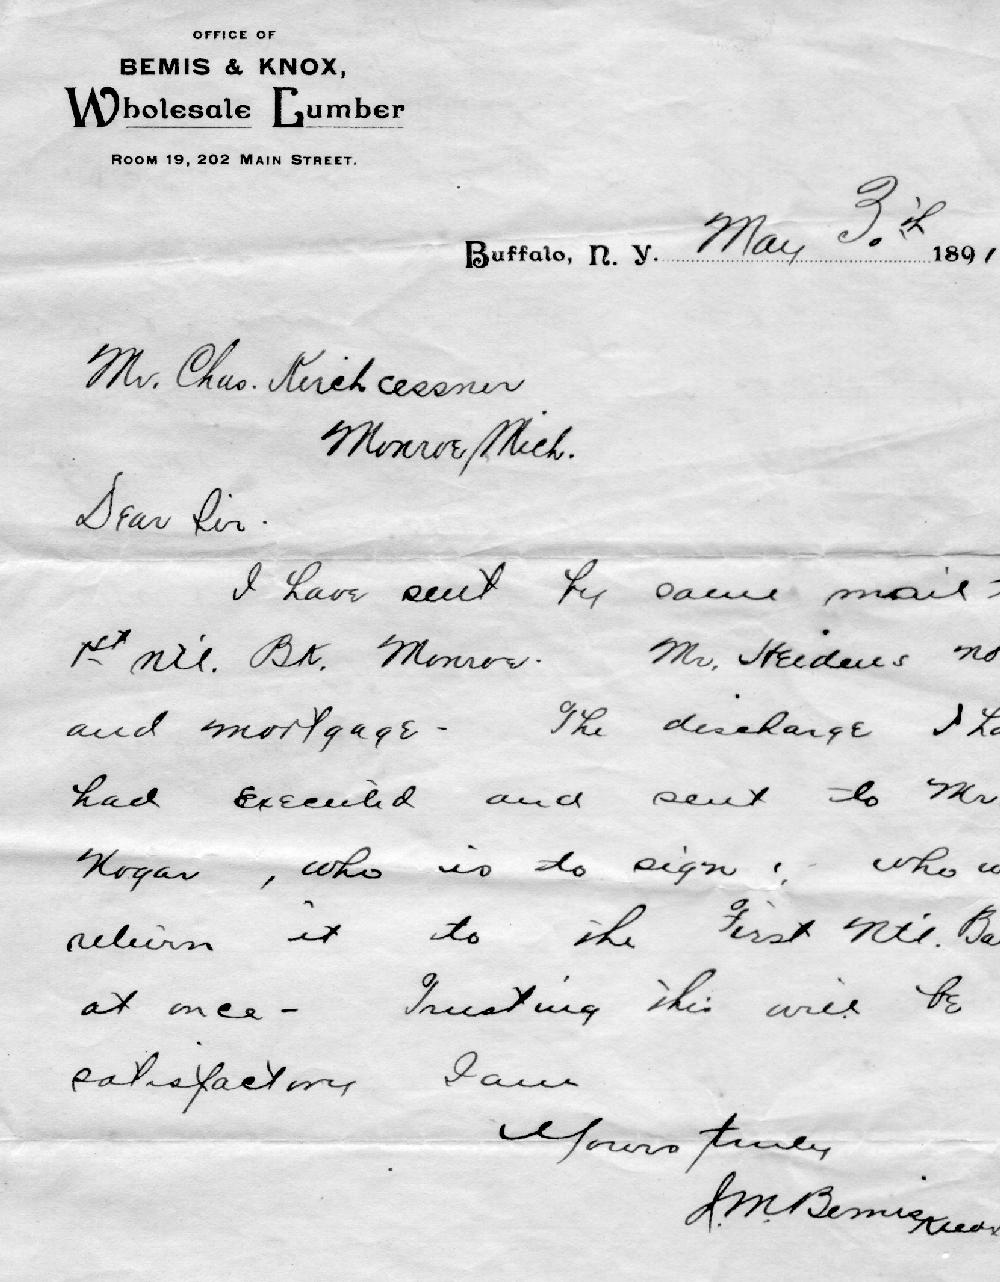 OFFICE OF
BEMIS & KNOX,
Wholesale Lumber
ROOM 19, 202 MAIN STREET.
Buffalo, N. Y. May 3.th 1891
Mr. Chas. Kirchcessner
Monroe, Mich.
Dear Sir.
I have sent by same mail
1st Ntl. Bk. Monroe. Mr. Heidens no
and mortgage - The discharge I ha
had executed and sent to Mr
Hogar, who is to sign; who w
return it to the First Ntl. Ba
at once - Trusting this will be
satisfactory I am
Yours truly
J. M. Bemis